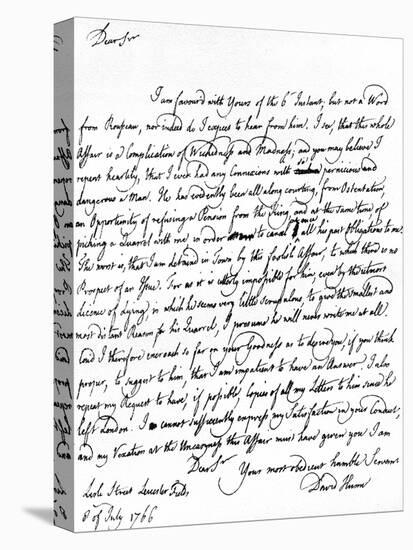 Dear Sir
I am favour'd with Yours of the 6th Instant, but not a Word
from Rousseau, nor indeed do I expect to hear from him. I see, that this whole
Affair is a Complication of Wickedness and Madness; and you may believe I
repent heartily, that I ever had any Connexions with so pernicious and
dangerous a Man. He has evidently been all along courting, from Ostentation,
an Opportunity of refusing a Pension from the King, and at the same time of
picking a Quarrel with me, in order to cancel at once all his past Obligations to me.
The most is, that I am detain'd in Town by this foolish Affair, to which there is no
Prospect of an Issue. For as it is utterly impossible for him, even by the utmost
Licence of Lying, in which he seems very little scrupulous, to give the smallest and
most distant Reason for his Quarrel, I presume he will never write me at all.
Coud I therefore encroach so far on your Goodness as to desire you, if you think
proper, to suggest to him, that I am impatient to have an Answer. I also
repeat my Request to have, if possible, Copies of all my Letters to him since he
left London. I cannot sufficiently express my Satisfaction in your Conduct,
and my Vexation at the Uneasyness this Affair must have given you I am
Dear Sir
Your most obedient humble Servant
David Hume
Lisle Street Leicester Fields
8 of July 1766